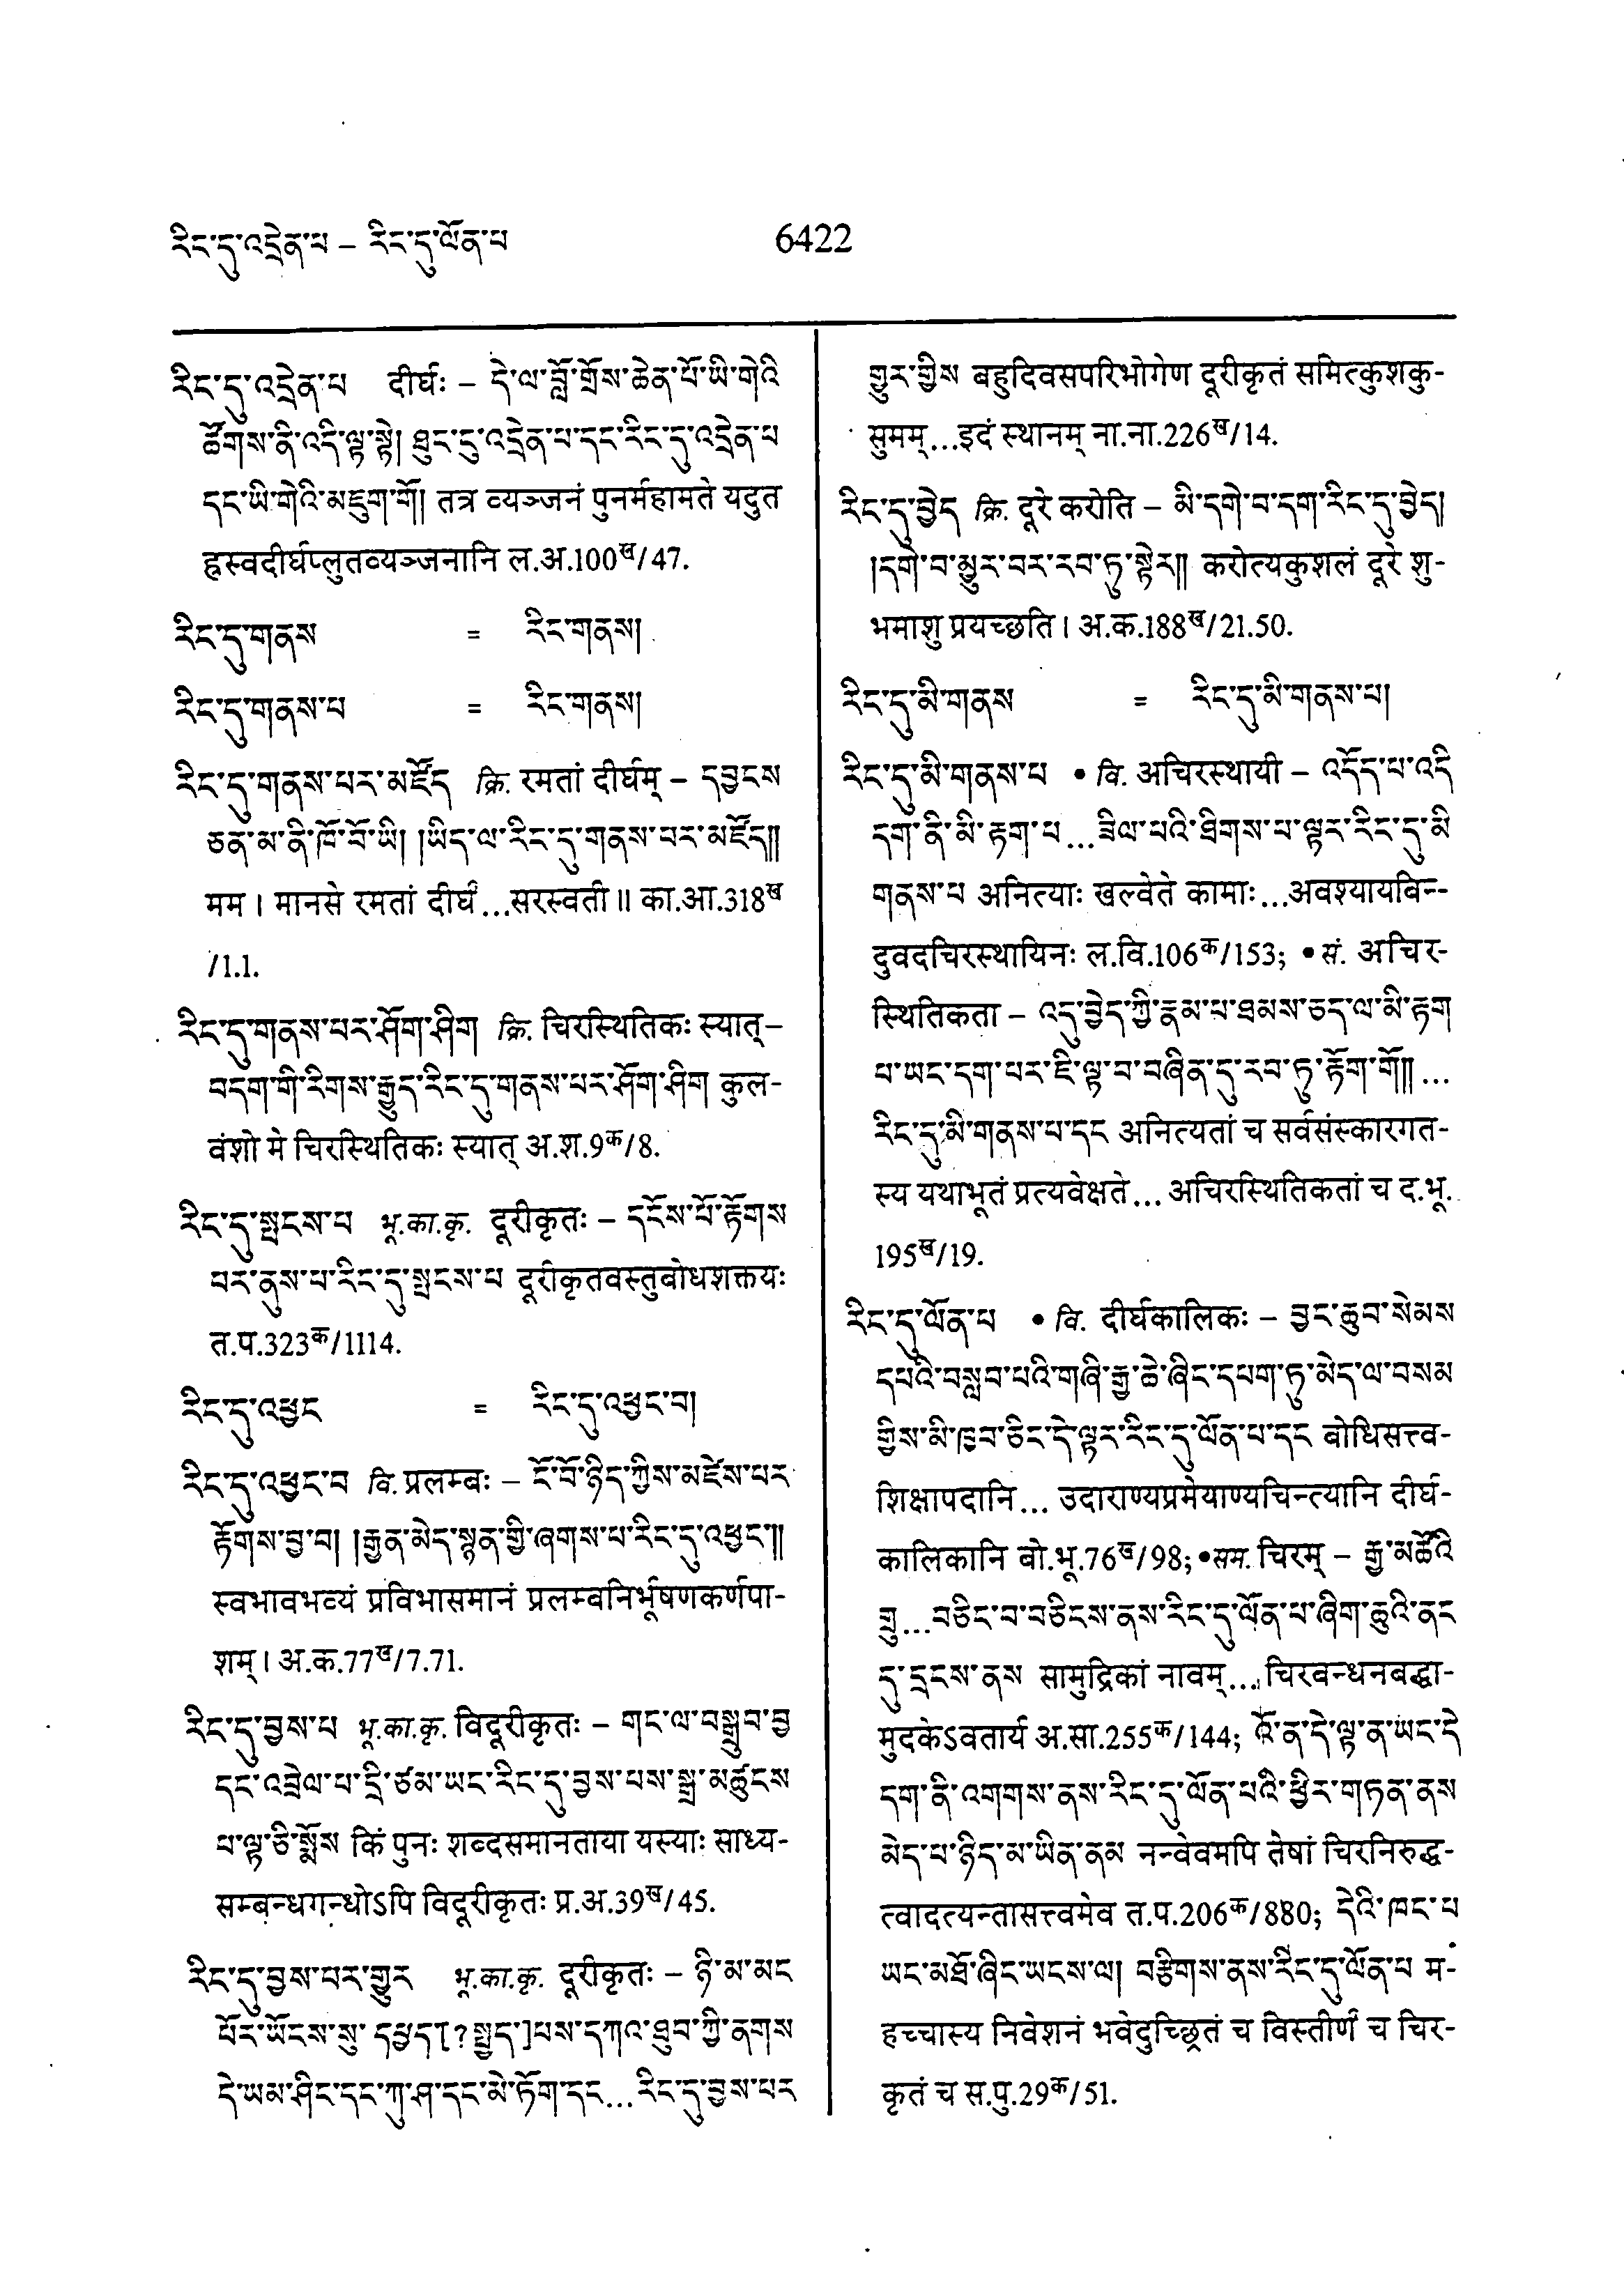 རིང་དུ་འདྲེན་པ – རིང་དུ་ལོན་པ
6422
རིང་དུ་འདྲེན་པ दीर्घः – དེ་ལ་བློ་གྲོས་ཆེན་པོ་ཡི་གེའི
ཚོགས་ནི་འདི་ལྟ་སྟེ། ཐུང་དུ་འདྲེན་པ་དང་རིང་དུ་འདྲེན་པ
དང་ཡི་གེའི་མཇུག་གོ། तत्र व्यञ्जनं पुनर्महामते यदुत
ह्रस्वदीर्घप्लुतव्यञ्जनानि ल.अ.100ख/47.
རིང་དུ་གནས = རིང་གནས།
རིང་དུ་གནས་པ = རིང་གནས།
རིང་དུ་གནས་པར་མཛོད क्रि. रमतां दीर्घम् – དབྱངས
ཅན་མ་ནི་ཁོ་བོ་ཡི། །ཡིད་ལ་རིང་དུ་གནས་པར་མཛོད།།
मम । मानसे रमतां दीर्घं...सरस्वती ॥ का.आ.318ख
/1.1.
རིང་དུ་གནས་པར་ཤོག་ཤིག क्रि. चिरस्थितिकः स्यात्–
བདག་གི་རིགས་རྒྱུད་རིང་དུ་གནས་པར་ཤོག་ཤིག कुल-
वंशो मे चिरस्थितिकः स्यात् अ.श.9क/8.
རིང་དུ་སྤངས་པ भू.का.कृ. दूरीकृतः – དངོས་པོ་རྟོགས
པར་ནུས་པ་རིང་དུ་སྤངས་པ दूरीकृतवस्तुबोधशक्तयः
त.प.323क/1114.
རིང་དུ་འཕྱང = རིང་དུ་འཕྱང་བ།
རིང་དུ་འཕྱང་བ वि. प्रलम्बः – ངོ་བོ་ཉིད་ཀྱིས་མཛེས་པར
རྟོགས་བྱ་བ། །རྒྱན་མེད་སྙན་གྱི་ཞགས་པ་རིང་དུ་འཕྱང་།།
स्वभावभव्यं प्रविभासमानं प्रलम्बनिर्भूषणकर्णपा-
शम् । अ.क.77ख/7.71.
རིང་དུ་བྱས་པ भू.का.कृ. विदूरीकृतः – གང་ལ་བསྒྲུབ་བྱ
དང་འབྲེལ་པ་དྲི་ཙམ་ཡང་རིང་དུ་བྱས་པས་སྒྲ་མཚུངས
པ་ལྟ་ཅི་སྨོས किं पुनः शब्दसमानताया यस्याः साध्य-
सम्बन्धगन्धोऽपि विदूरीकृतः प्र.अ.39ख/45.
རིང་དུ་བྱས་པར་གྱུར भू.का.कृ. दूरीकृतः – ཉི་མ་མང
པོར་ཡོངས་སུ་ དཔྱད་[?སྤྱད་]པས་དཀའ་ཐུབ་ཀྱི་ནགས
དེ་ཡམ་ཤིང་དང་ཀུ་ཤ་དང་མེ་ཏོག་དང...རིང་དུ་བྱས་པར
གྱུར་གྱིས बहुदिवसपरिभोगेण दूरीकृतं समित्कुशकु-
सुमम्...इदं स्थानम् ना.ना.226ख/14.
རིང་དུ་བྱེད क्रि. दूरे करोति – མི་དགེ་བ་དག་རིང་དུ་བྱེད།
།དགེ་བ་མྱུར་བར་རབ་ཏུ་སྟེར།། करोत्यकुशलं दूरे शु-
भमाशु प्रयच्छति । अ.क.188ख/21.50.
རིང་དུ་མི་གནས = རིང་དུ་མི་གནས་པ།
རིང་དུ་མི་གནས་པ • वि. अचिरस्थायी – འདོད་པ་འདི
དག་ནི་མི་རྟག་པ...ཟིལ་པའི་ཐིགས་པ་ལྟར་རིང་དུ་མི
གནས་པ अनित्याः खल्वेते कामाः...अवश्यायबिन्-
दुवदचिरस्थायिनः ल.वि.106क/153; • सं. अचिर-
स्थितिकता – འདུ་བྱེད་ཀྱི་རྣམ་པ་ཐམས་ཅད་ལ་མི་རྟག
པ་ཡང་དག་པར་ཇི་ལྟ་བ་བཞིན་དུ་རབ་ཏུ་རྟོག་གོ།།...
རིང་དུ་མི་གནས་པ་དང अनित्यतां च सर्वसंस्कारगत-
स्य यथाभूतं प्रत्यवेक्षते... अचिरस्थितिकतां च द.भू.
195ख/19.
རིང་དུ་ལོན་པ • वि. दीर्घकालिकः – བྱང་ཆུབ་སེམས
དཔའི་བསླབ་པའི་གཞི་རྒྱ་ཆེ་ཞིང་དཔག་ཏུ་མེད་ལ་བསམ
གྱིས་མི་ཁྱབ་ཅིང་དེ་ལྟར་རིང་དུ་ལོན་པ་དང बोधिसत्त्व-
शिक्षापदानि... उदाराण्यप्रमेयाण्यचिन्त्यानि दीर्घ-
कालिकानि बो.भू.76ख/98; • सम. चिरम् – རྒྱ་མཚོའི
གྲུ...བཅིང་བ་བཅིངས་ནས་རིང་དུ་ལོན་པ་ཞིག་ཆུའི་ནང
དུ་དྲངས་ནས सामुद्रिकां नावम्...चिरबन्धनबद्धा-
मुदकेऽवतार्य अ.सा.255क/144; འོ་ན་དེ་ལྟ་ན་ཡང་དེ
དག་ནི་འགགས་ནས་རིང་དུ་ལོན་པའི་ཕྱིར་གཏན་ནས
མེད་པ་ཉིད་མ་ཡིན་ནམ नन्वेवमपि तेषां चिरनिरुद्ध-
त्वादत्यन्तासत्त्वमेव त.प.206क/880; དེའི་ཁང་པ
ཡང་མཐོ་ཞིང་ཡངས་ལ། བརྩིགས་ནས་རིང་དུ་ལོན་པ म-
हच्चास्य निवेशनं भवेदुच्छ्रितं च विस्तीर्णं च चिर-
कृतं च स.पु.29क/51.